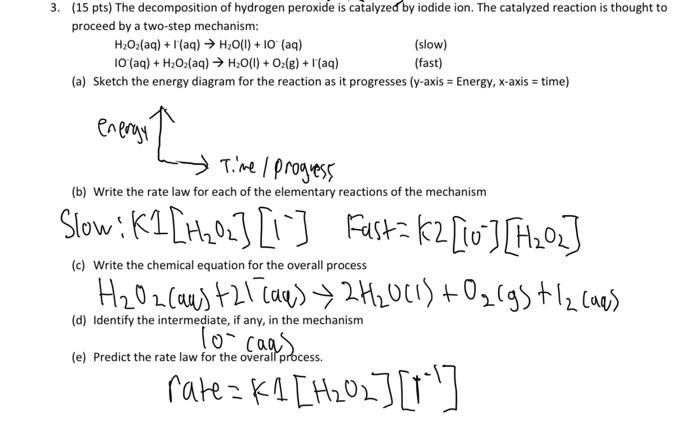 3. (15 pts) The decomposition of hydrogen peroxide is catalyzed by iodide ion. The catalyzed reaction is thought to
proceed by a two-step mechanism:
H₂O₂(aq) + I⁻(aq) → H₂O(l) + IO⁻ (aq) (slow)
IO⁻(aq) + H₂O₂(aq) → H₂O(l) + O₂(g) + I⁻(aq) (fast)
(a) Sketch the energy diagram for the reaction as it progresses (y-axis = Energy, x-axis = time)
energy
Time / progress
(b) Write the rate law for each of the elementary reactions of the mechanism
Slow: K1[H₂O₂][I⁻] Fast = K2[IO⁻][H₂O₂]
(c) Write the chemical equation for the overall process
H₂O₂(aq) + 2I⁻(aq) → 2H₂O(l) + O₂(g) + I₂(aq)
(d) Identify the intermediate, if any, in the mechanism
IO⁻ (aq)
(e) Predict the rate law for the overall process.
rate = K1[H₂O₂][I⁻¹]